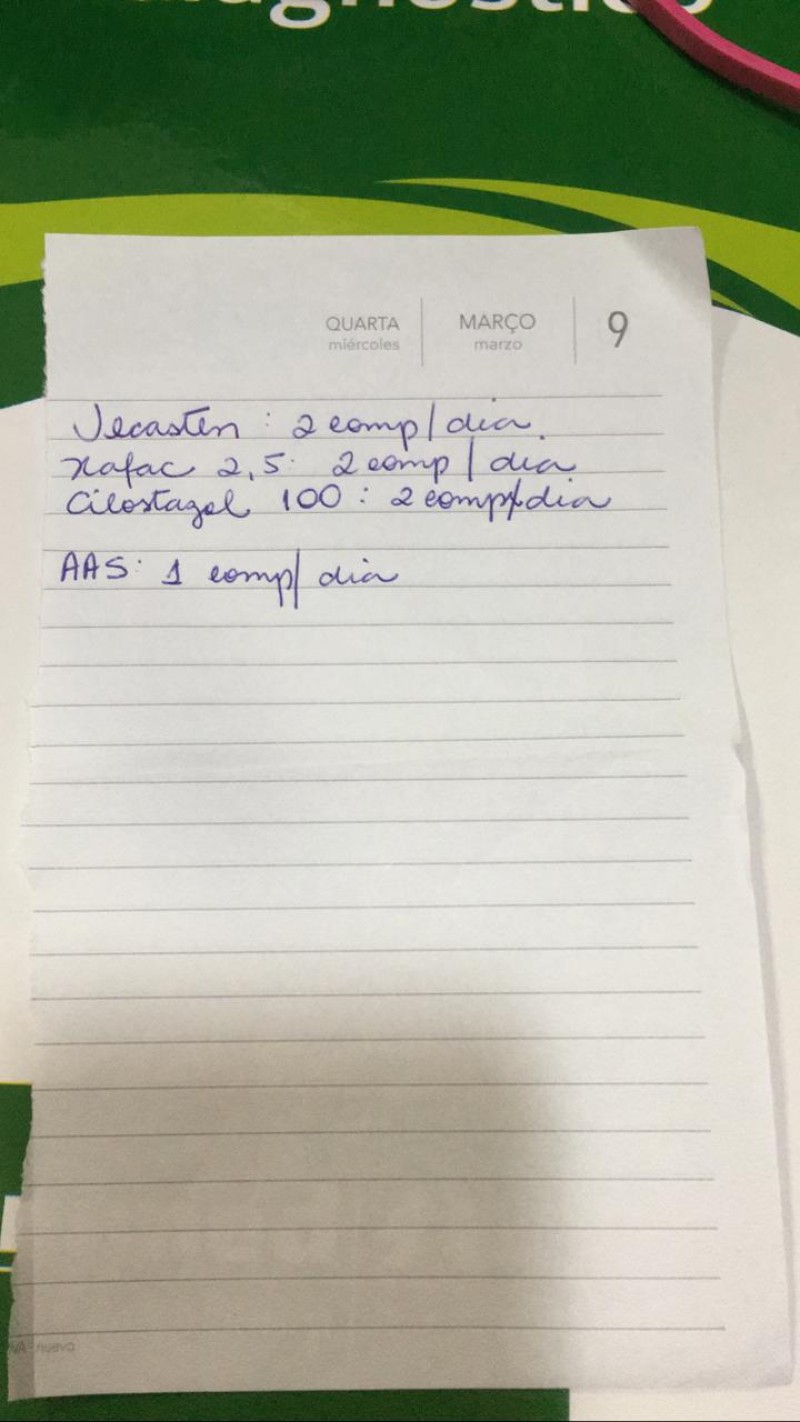 diagnóstico
QUARTA
miércoles
MARÇO
marzo
9
Vecasten : 2 comp/dia.
2,5: 2 comp/dia
Cilostazol 100 : 2 comp/dia
AAS: 1 comp/ dia
nueva